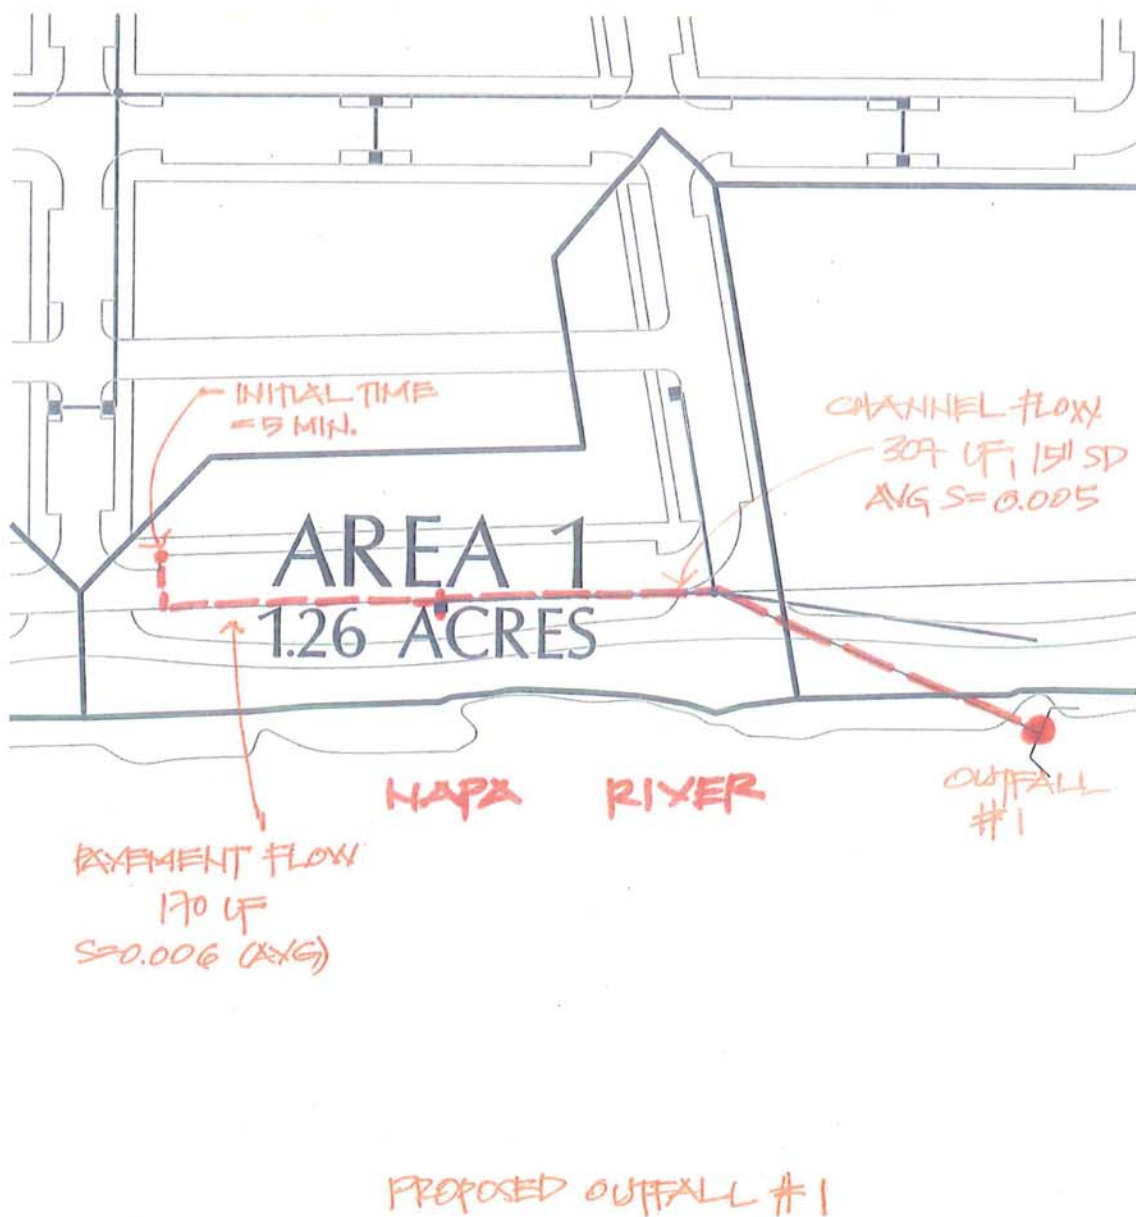 INITIAL TIME
= 5 MIN.
CHANNEL FLOW
307 LF, 15" SD
AVG S= 0.005
AREA 1
1.26 ACRES
NAPA RIVER
OUTFALL
#1
PAVEMENT FLOW
170 LF
S=0.006 (AVG)
PROPOSED OUTFALL #1